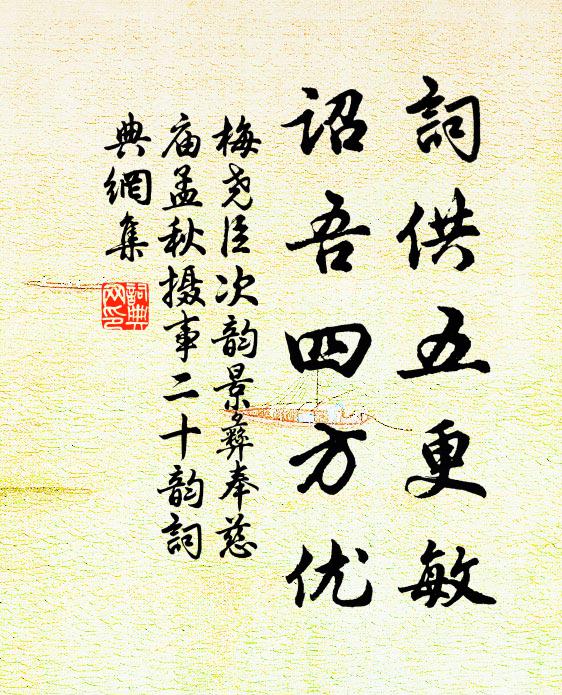 詞供五更敏
诏吾四方优
梅尧臣次韵景彝奉慈
庙孟秋摄事二十韵詞
典網集
詞典
网印